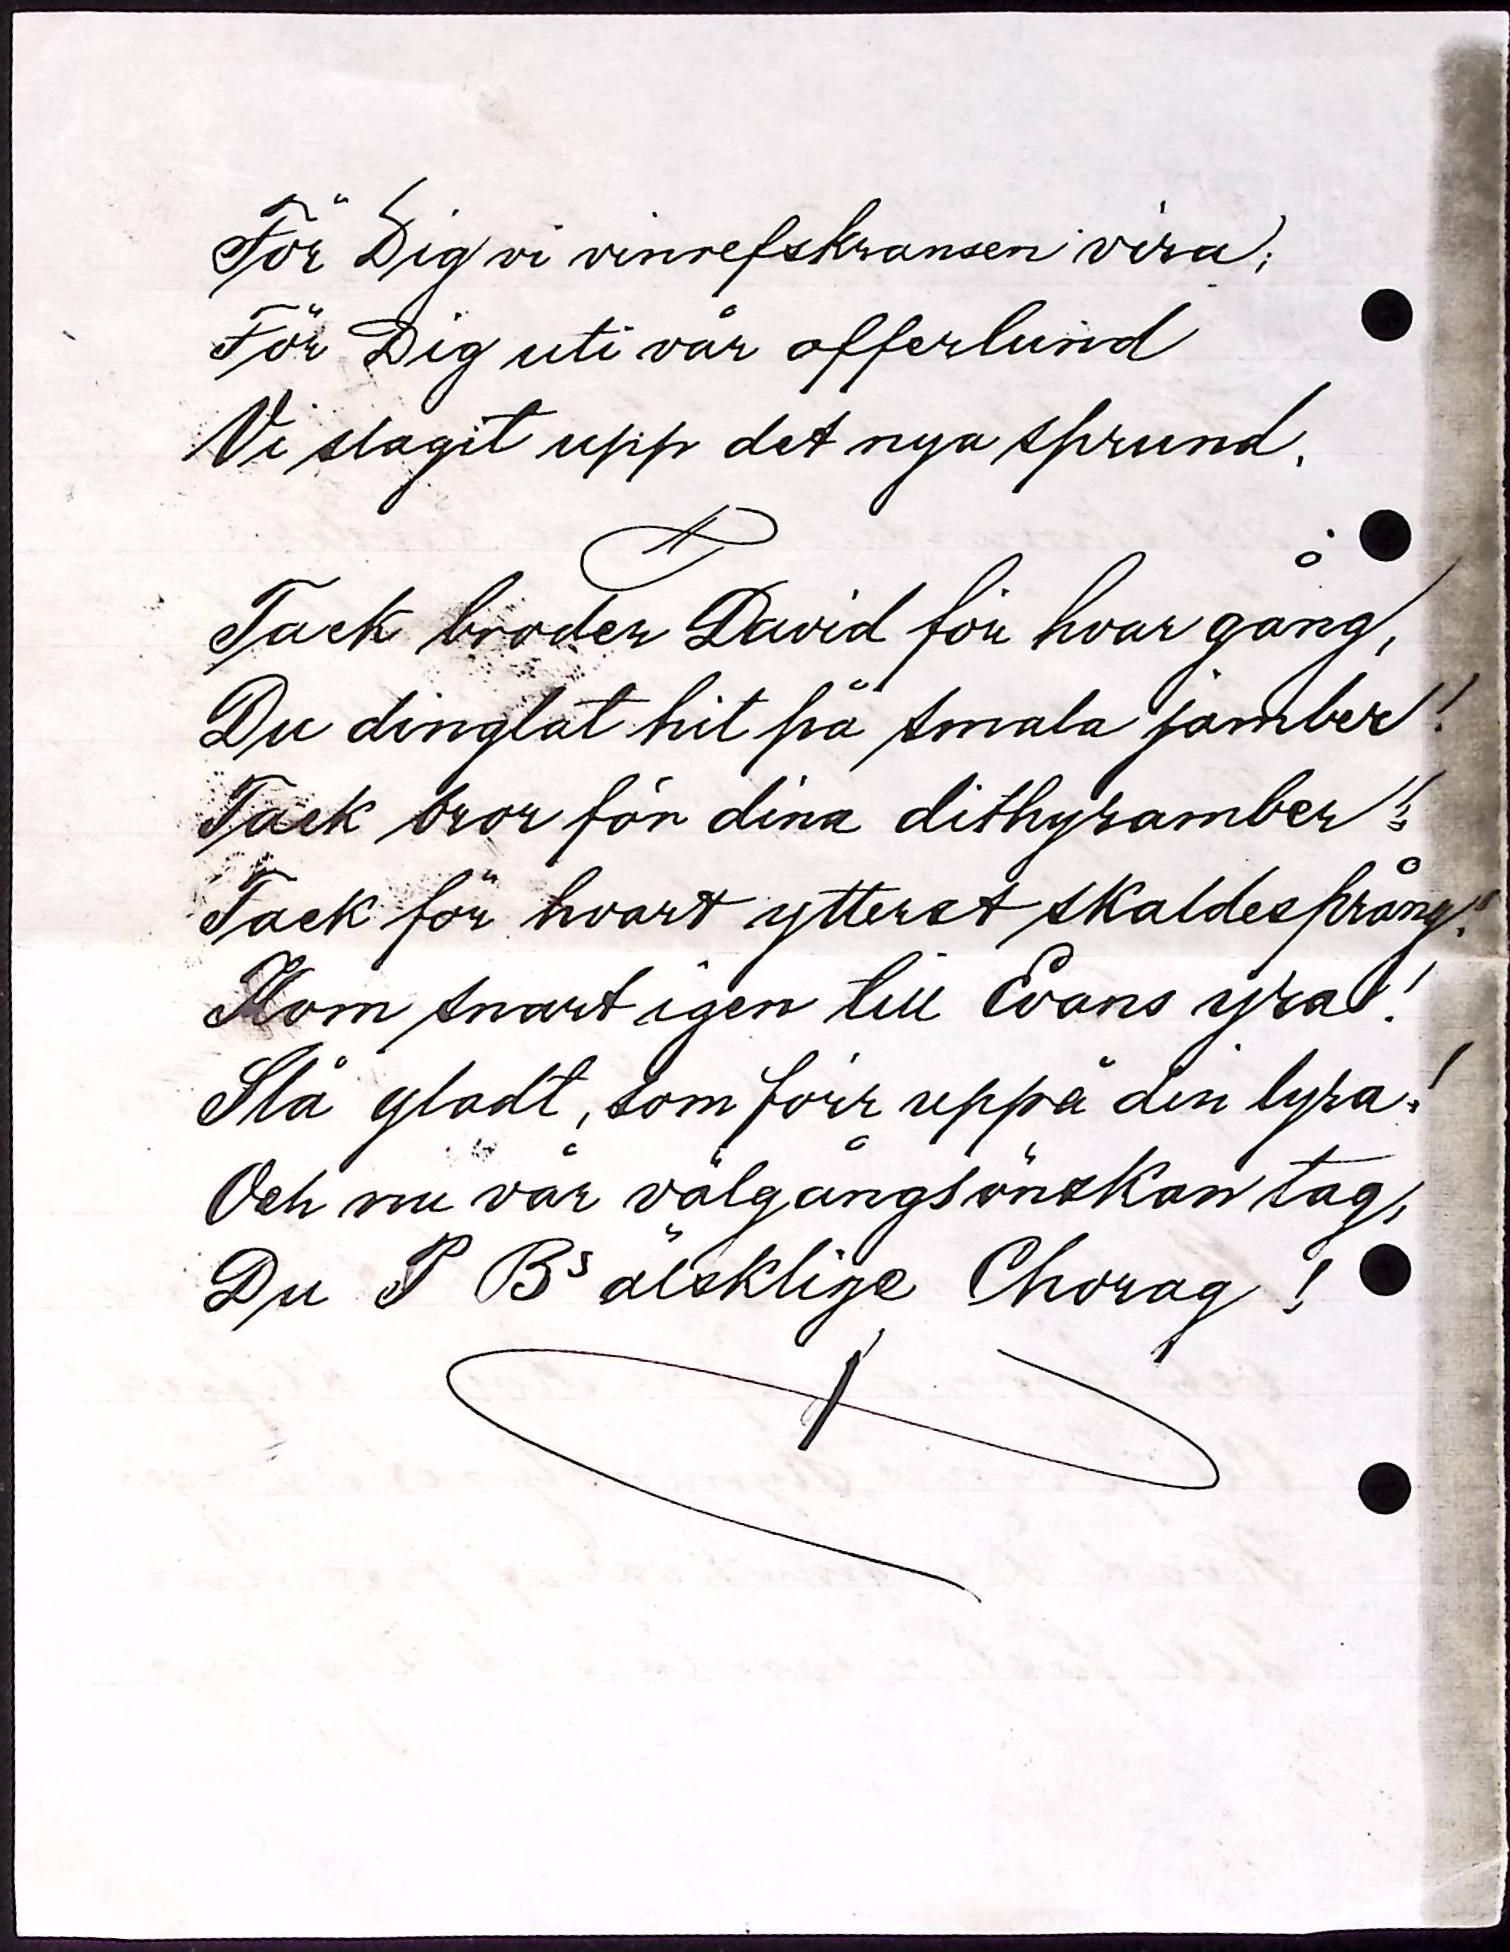 För Dig vi vinrefskransen vira;
För Dig uti vår offerlund
Vi slagit upp det nya sprund.
Tack broder David för hvar gång,
Du dinglat hit på smala jamber!
Tack bror för dina dithyramber!
Tack för hvart ytterst skaldesprång!
Kom snart igen till Evans yra!
Slå gladt, som förr uppå din lyra!
Och nu vår välgångsönskan tag,
Du P Bs älsklige Chorag!